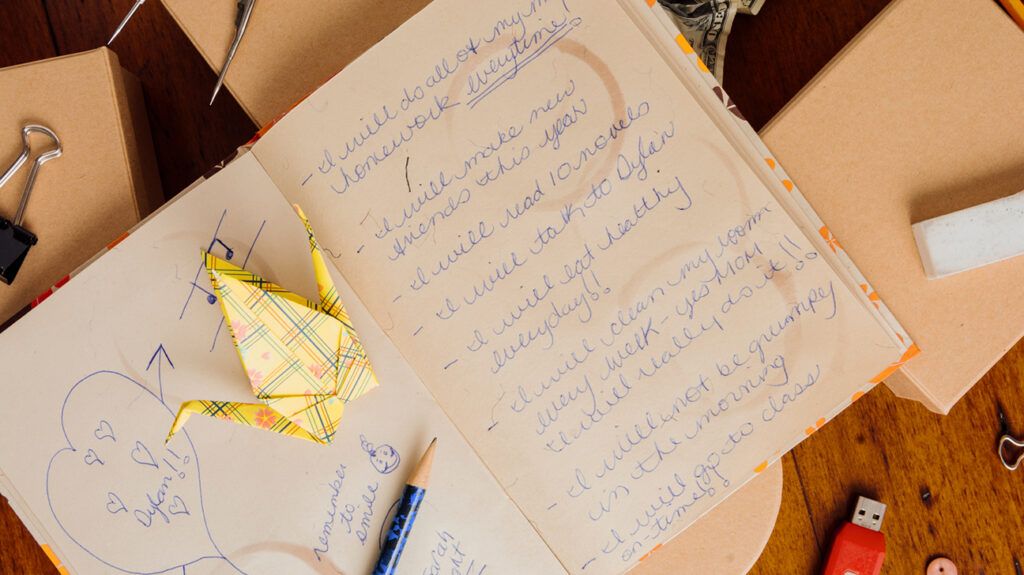 - I will do all of my
homework everytime!
- I will make new
friends this year
- I will read 10 novels
- I will talk to Dylan
- I will eat healthy
everyday!!
- I will clean my room
every week - yes MOM
I will really do it!!
- I will not be grumpy
in the morning
- I will go to class
on-time
Dylan!!
remember
to
smile